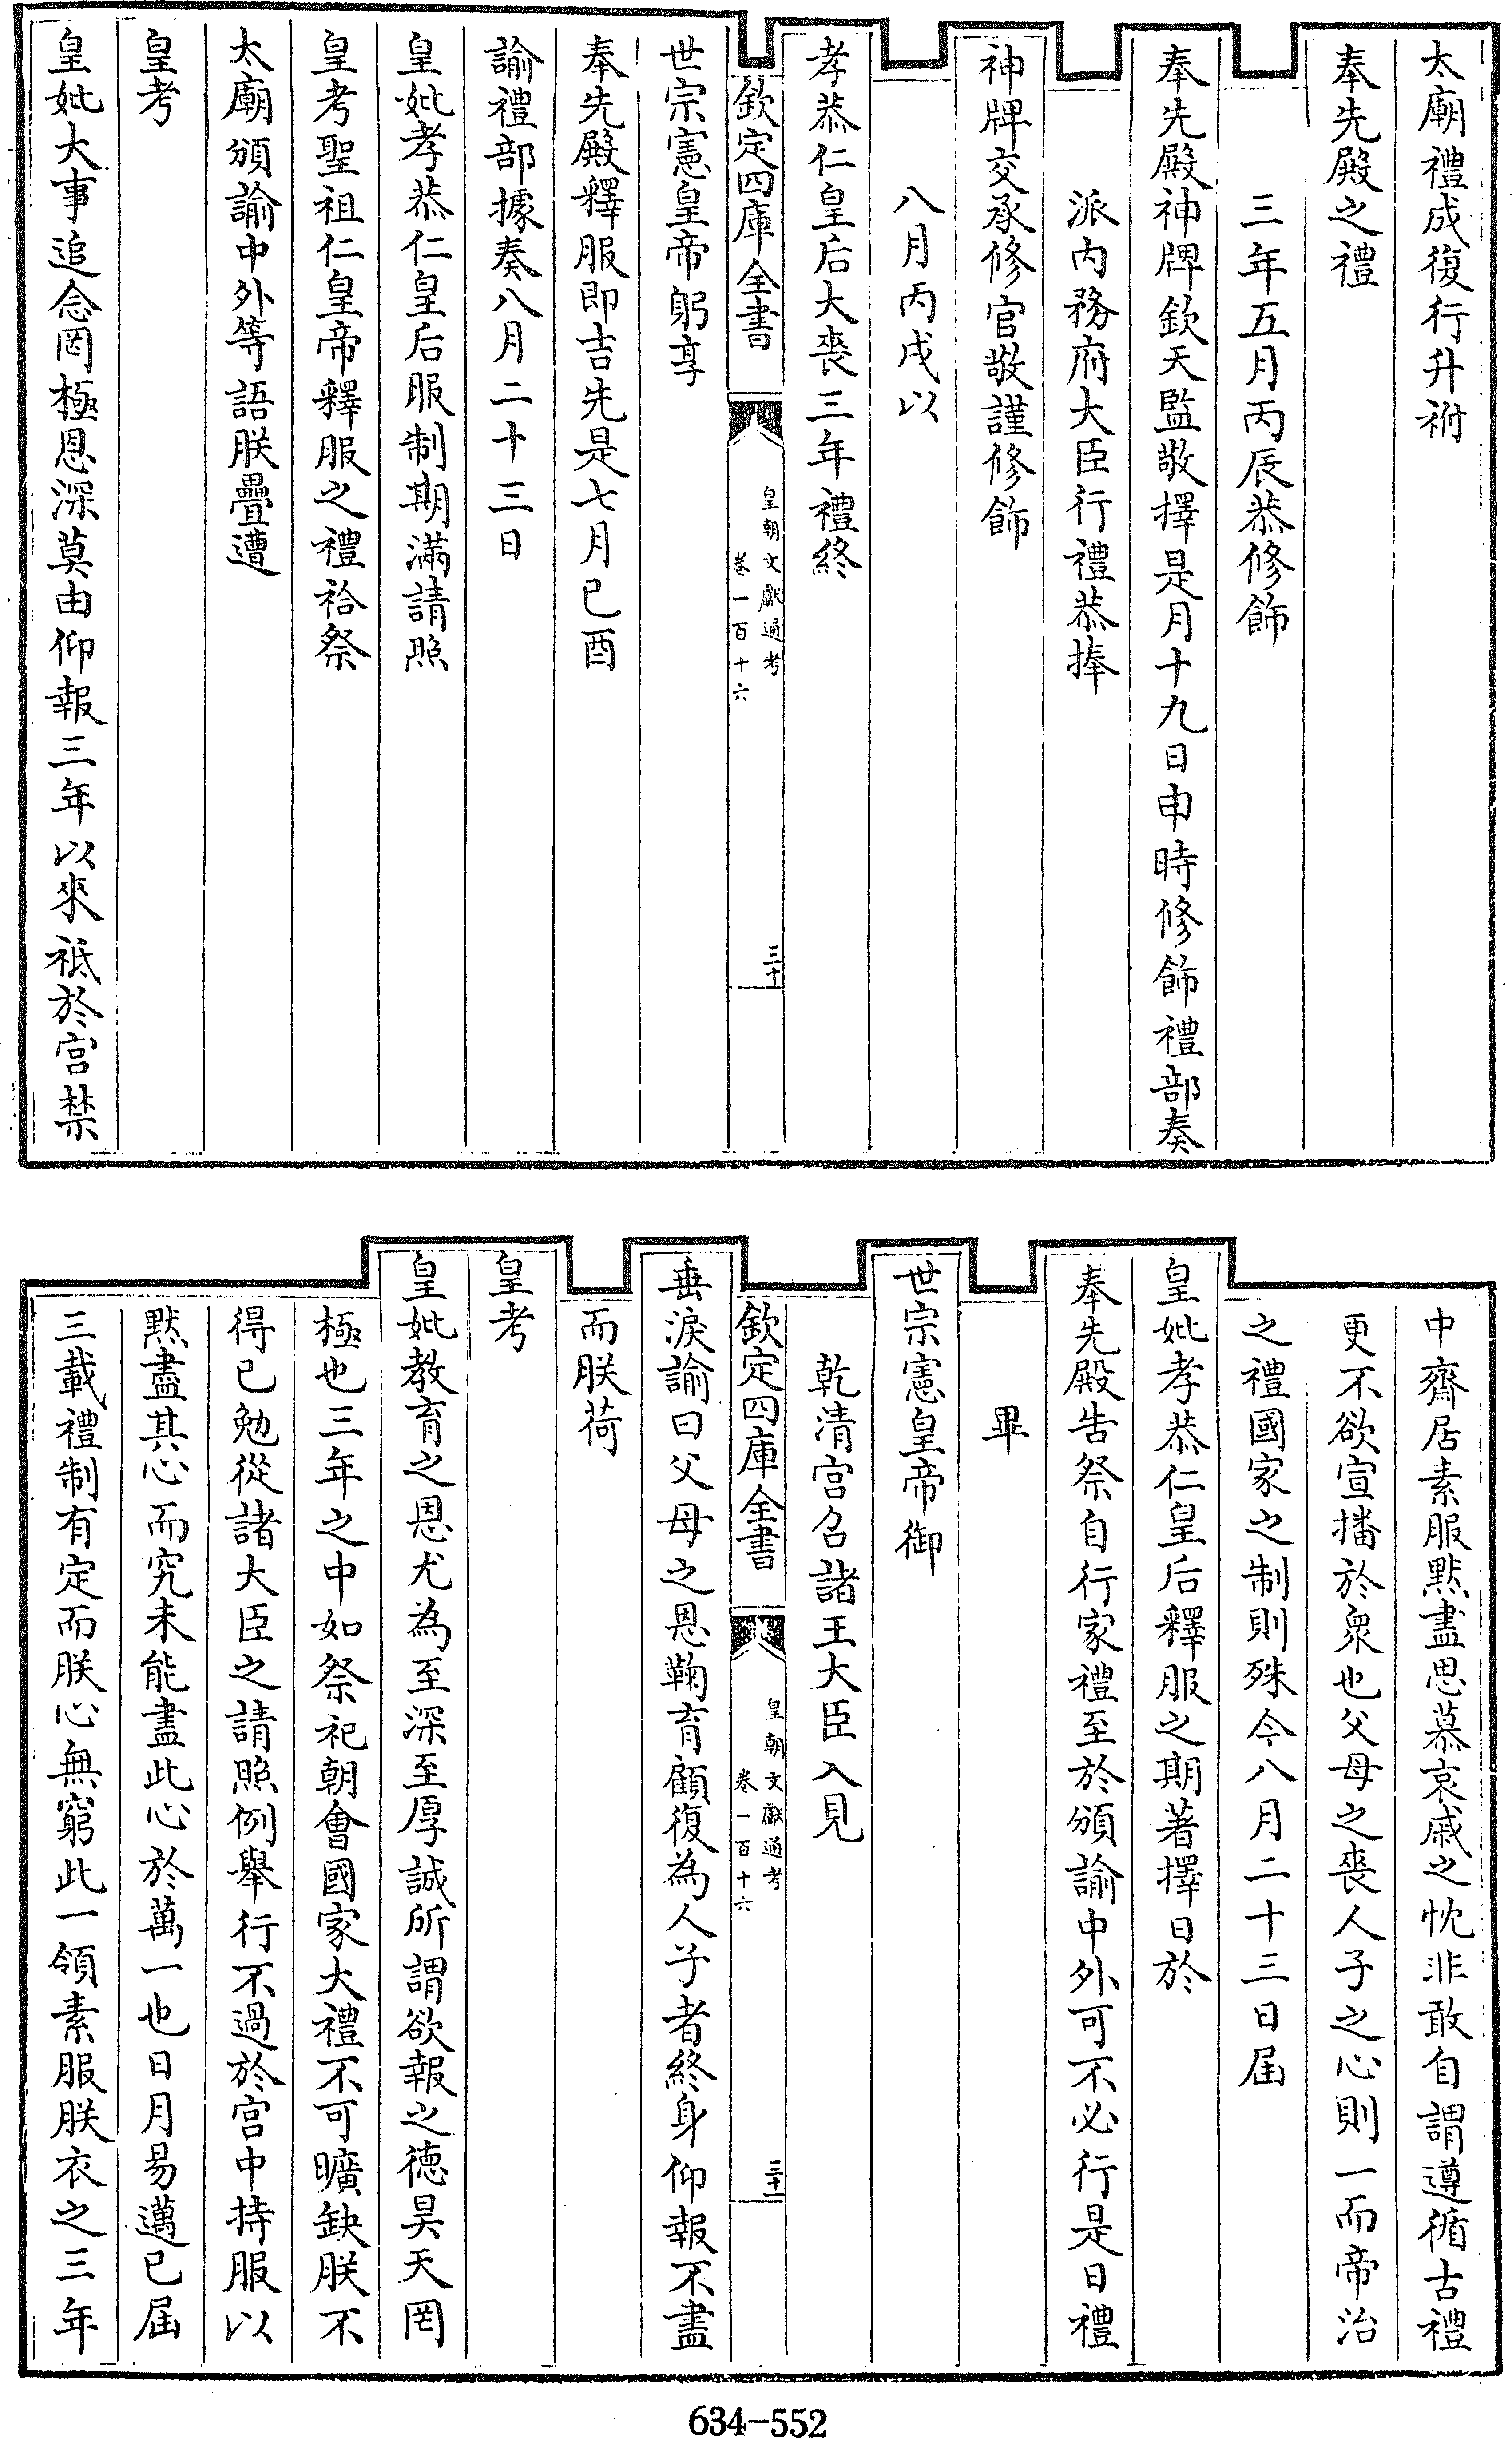 太廟禮成復行升祔
奉先殿之禮
三年五月丙辰恭修飾
奉先殿神牌欽天監敬擇是月十九日申時修飾禮部奏
派内務府大臣行禮恭捧
神牌交承修官敬謹修飾
八月丙戌以
孝恭仁皇后大喪三年禮終
欽定四庫全書
皇朝文獻通考
卷一百十六
三十
世宗憲皇帝躬享
奉先殿釋服即吉先是七月己酉
諭禮部據奏八月二十三日
皇妣孝恭仁皇后服制期滿請照
皇考聖祖仁皇帝釋服之禮祫祭
太廟頒諭中外等語朕疊遭
皇考
皇妣大事追念罔極恩深莫由仰報三年以來祇於宮禁
中齋居素服黙盡思慕哀戚之忱非敢自謂遵循古禮
更不欲宣播於衆也父母之喪人子之心則一而帝治
之禮國家之制則殊今八月二十三日屆
皇妣孝恭仁皇后釋服之期著擇日於
奉先殿告祭自行家禮至於頒諭中外可不必行是日禮
畢
世宗憲皇帝御
乾清宮召諸王大臣入見
欽定四庫全書
皇朝文獻通考
卷一百十六
三十一
垂淚諭曰父母之恩鞠育顧復為人子者終身仰報不盡
而朕荷
皇考
皇妣教育之恩尤為至深至厚誠所謂欲報之德昊天罔
極也三年之中如祭祀朝會國家大禮不可曠缺朕不
得已勉從諸大臣之請照例舉行不過於宮中持服以
黙盡其心而究未能盡此心於萬一也日月易邁已屆
三載禮制有定而朕心無窮此一領素服朕衣之三年
634-552